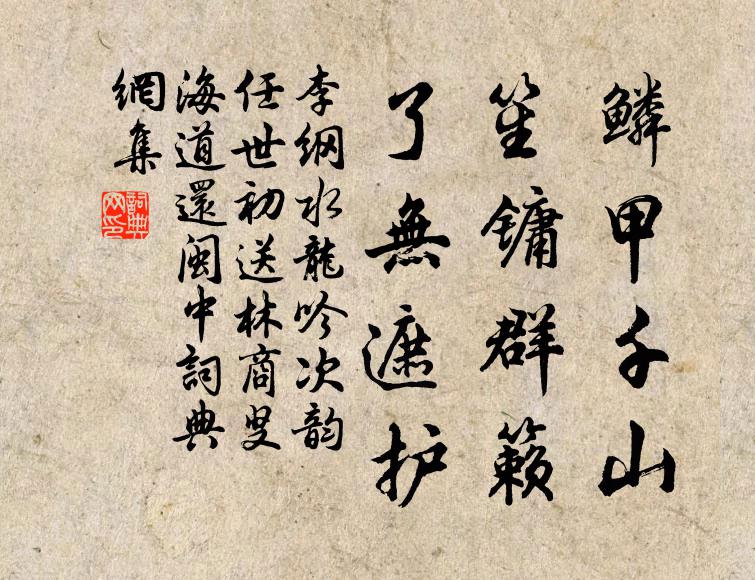 鳞甲千山
笙镛群籁
了無遮护
李纲水龍吟次韵
任世初送林商叟
海道還闽中詞典
網集
詞典网印